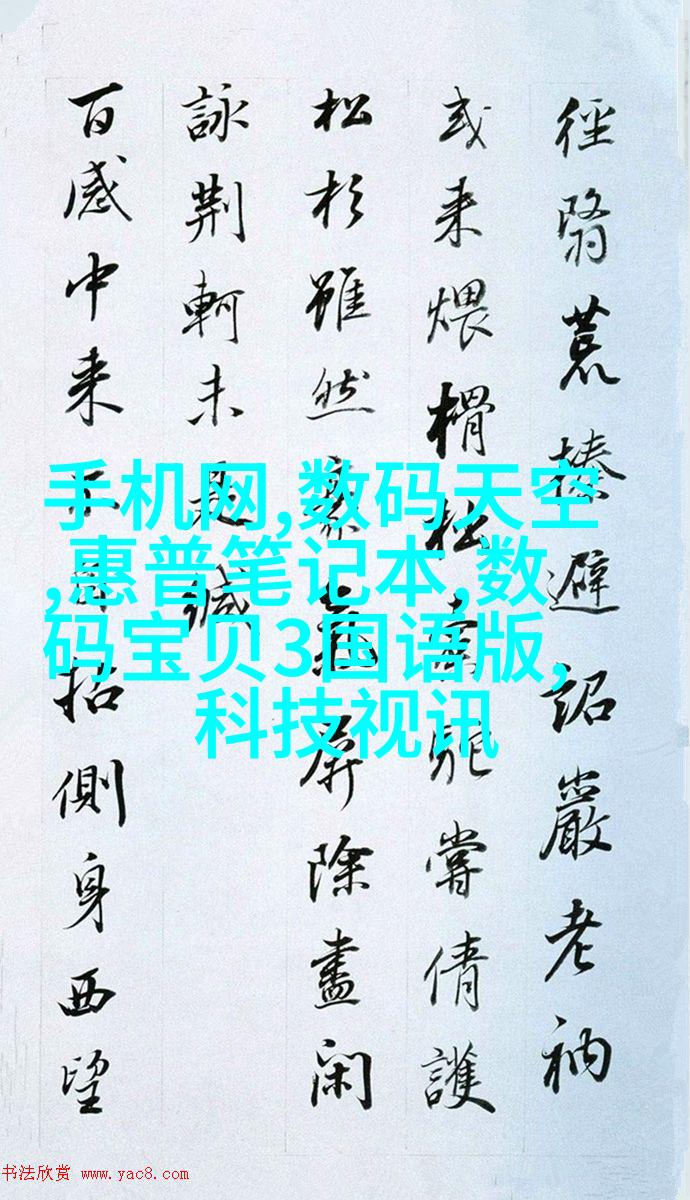 徑翳荒榛避詔嚴老衲
或来煨榾柮駝嘗倩護
松杉雖然屏除盡閑
詠荆軻未是
百感中来招側身西望
手机网,数码天空
,惠普笔记本,数
码宝贝3国语版,
科技视讯
书法欣赏 www.yac8.com